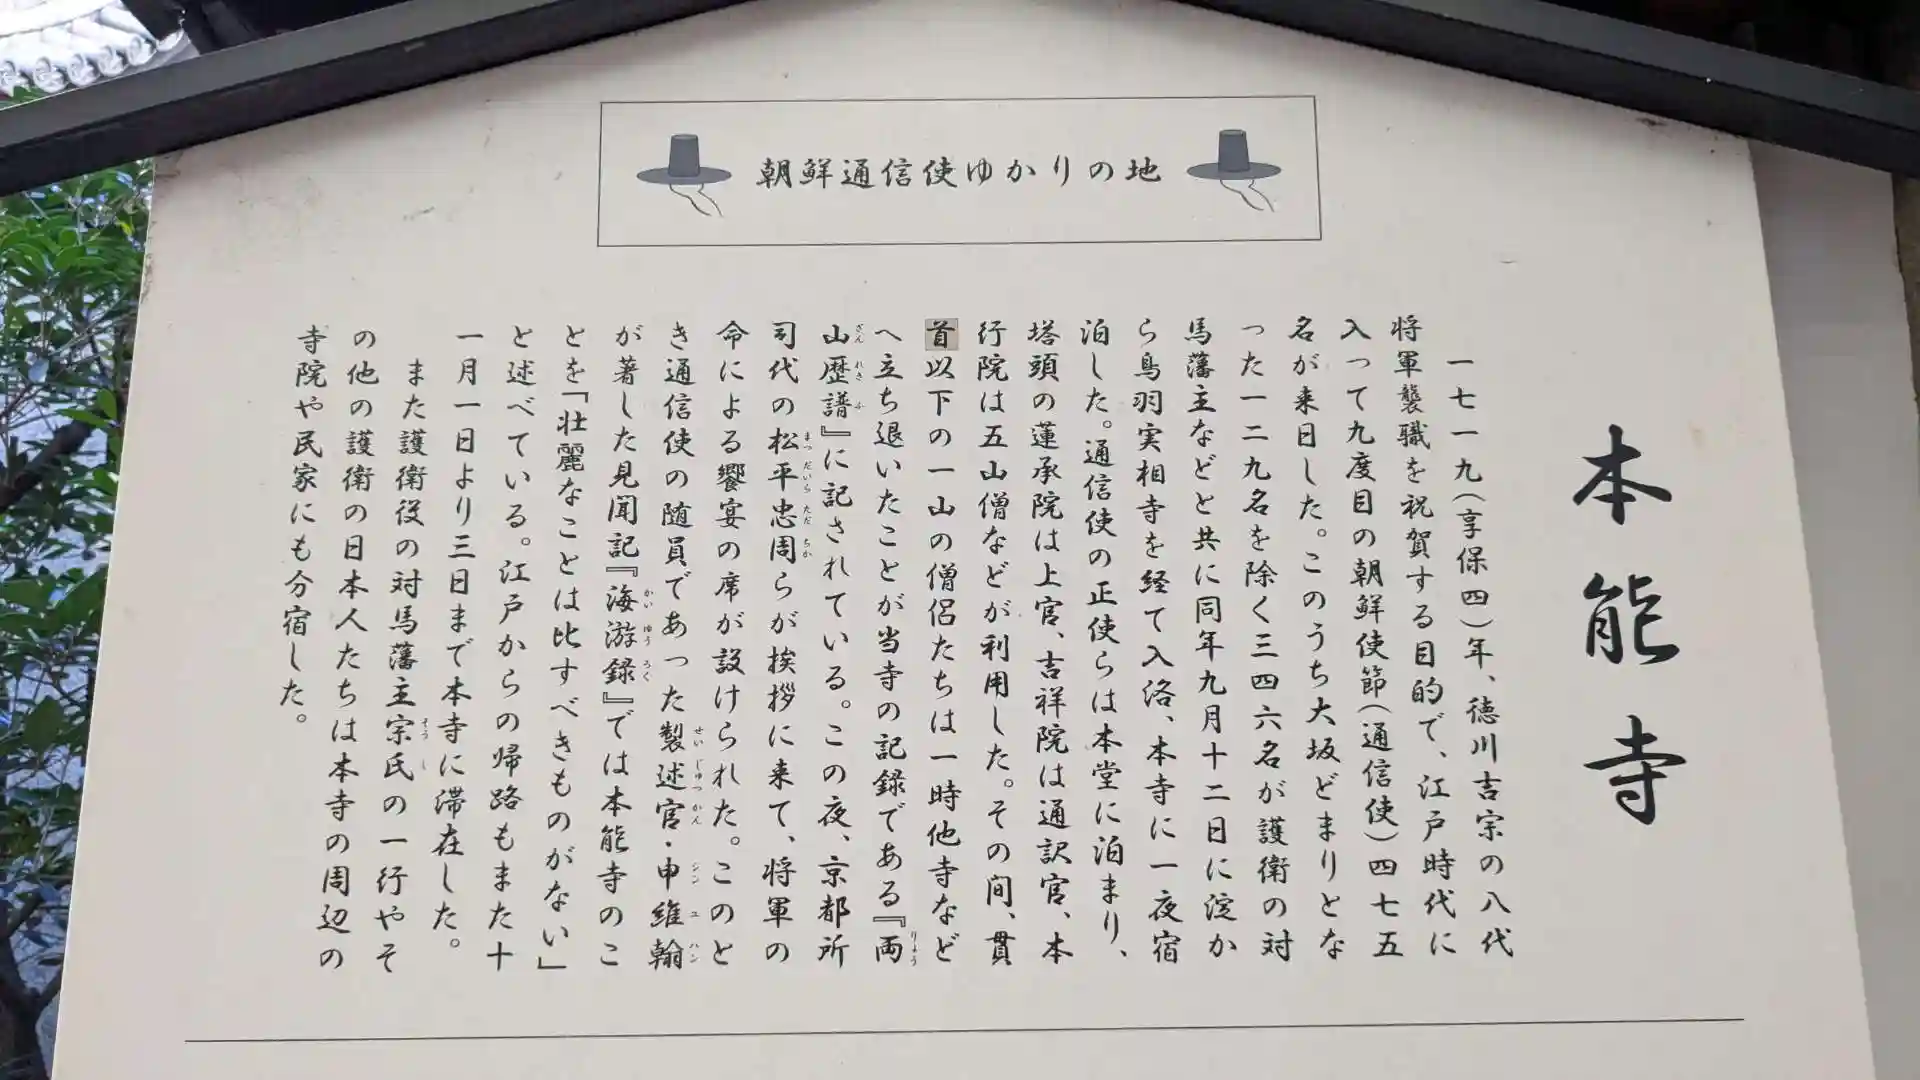 朝鮮通信使ゆかりの地
本能寺
一七一九(享保四)年、徳川吉宗の八代
将軍襲職を祝賀する目的で、江戸時代に
入って九度目の朝鮮使節(通信使)四七五
名が来日した。このうち大坂どまりとな
った一二九名を除く三四六名が護衛の対
馬藩主などと共に同年九月十二日に淀か
ら鳥羽実相寺を経て入洛、本寺に一夜宿
泊した。通信使の正使らは本堂に泊まり、
塔頭の蓮承院は上官、吉祥院は通訳官、本
行院は五山僧などが利用した。その間、貫
首以下の一山の僧侶たちは一時他寺など
へ立ち退いたことが当寺の記録である『両
山歴譜』に記されている。この夜、京都所
司代の松平忠周らが挨拶に来て、将軍の
命による饗宴の席が設けられた。このと
き通信使の随員であった製述官・申維翰
が著した見聞記『海游録』では本能寺のこ
とを「壮麗なことは比すべきものがない」
と述べている。江戸からの帰路もまた十
一月一日より三日まで本寺に滞在した。
また護衛役の対馬藩主宗氏の一行やそ
の他の護衛の日本人たちは本寺の周辺の
寺院や民家にも分宿した。